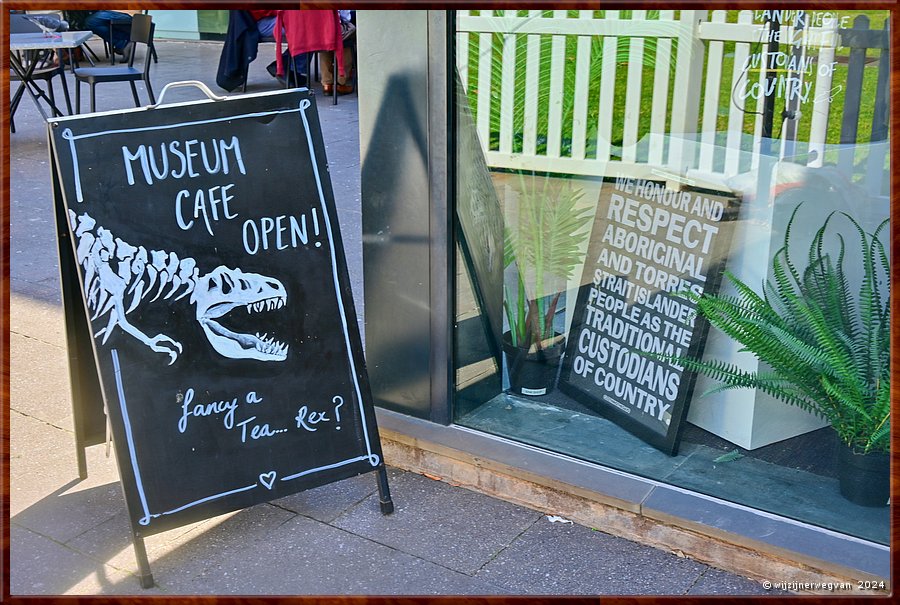 MUSEUM
CAFE
OPEN!
fancy a
Tea... Rex?
WE HONOUR AND
RESPECT
ABORIGINAL
AND TORRES
STRAIT ISLANDER
PEOPLE AS THE
TRADITIONAL
CUSTODIANS
OF COUNTRY.
PEOPLE
THE
OF
COUNTRY
©wijzijnerwegvan 2024